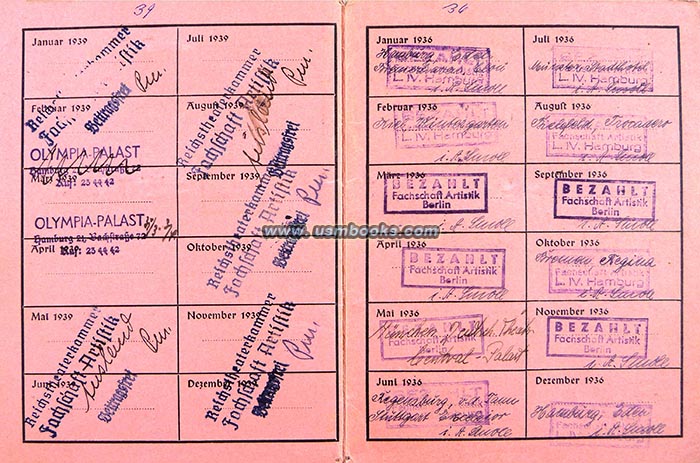 39
Januar 1939
Reichstheaterkammer
Fachschaft Artistik
Februar 1939
Beitragsfrei
OLYMPIA-PALAST
Hamburg 21, Bachstraße 72
Ruf: 23 44 42
März 1939
OLYMPIA-PALAST
Hamburg 21, Bachstraße 72
Ruf: 23 44 42
April 1939
Mai 1939
Reichstheaterkammer
Fachschaft Artistik
Ausland
Beitragsfrei
Juni 1939
Juli 1939
Reichstheaterkammer
Fachschaft Artistik
Ausland
Beitragsfrei
August 1939
September 1939
Reichstheaterkammer
Fachschaft Artistik
Beitragsfrei
Oktober 1939
November 1939
Reichstheaterkammer
Fachschaft Artistik
Beitragsfrei
Dezember 1939
36
Januar 1936
Hamburg, Eden
L. IV. Hamburg
Februar 1936
Kiel, Wintergarten
L. IV. Hamburg
i. A.
März 1936
BEZAHLT
Fachschaft Artistik
Berlin
i. A.
April 1936
BEZAHLT
Fachschaft Artistik
Berlin
i. A.
Mai 1936
München
Central-Palast
Juni 1936
Regensburg
Stuttgart Excelsior
i. A.
Juli 1936
L. IV. Hamburg
i. A.
August 1936
Bielefeld, Trocadero
L. IV. Hamburg
i. A.
September 1936
BEZAHLT
Fachschaft Artistik
Berlin
i. A.
Oktober 1936
Bremen Regina
L. IV. Hamburg
i. A.
November 1936
BEZAHLT
Fachschaft Artistik
Berlin
i. A.
Dezember 1936
Hamburg, Eden
i. A.
www.usmbooks.com